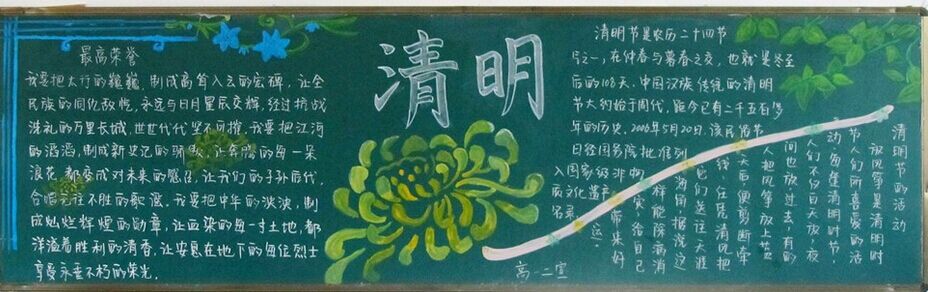 最高荣誉
我要把太行的巍巍，制成高耸入云的宏碑，让全
民族的同仇敌忾，永远与日月星辰交辉，经过抗战
洗礼的万里长城，世世代代坚不可摧，我要把江河
的滔滔，制成新史记的骄傲，让奔腾的每一朵
浪花，都变成对未来的感召，让我们的子孙后代，
合唱先往不胜的歌谣，我要把中华的泱泱，制
成灿烂辉煌的勋章，让血染的每一寸土地，都
洋溢着胜利的清香，让安息在地下的每位烈士
享受永垂不朽的荣光。
清明
清明节是农历二十四节
气之一，在仲春与暮春之交，也就是冬至
后的108天，中国汉族传统的清明
节大约始于周代，距今已有二千五百多
年的历史，2006年5月20日，该民俗节
日经国务院批准列
入国家级非物
质文化遗产
名录。
清明节的活动
放风筝是清明时
节人们所喜爱的活
动，每逢清明时节，
人们不仅白天放，夜
间也放，过去，有的
人把风筝放上蓝
天后，便剪断牵
线，任凭清风把
它们送往天涯
海角，据说这
样能除病消
灾，给自己
带来好
运。
高一二宣